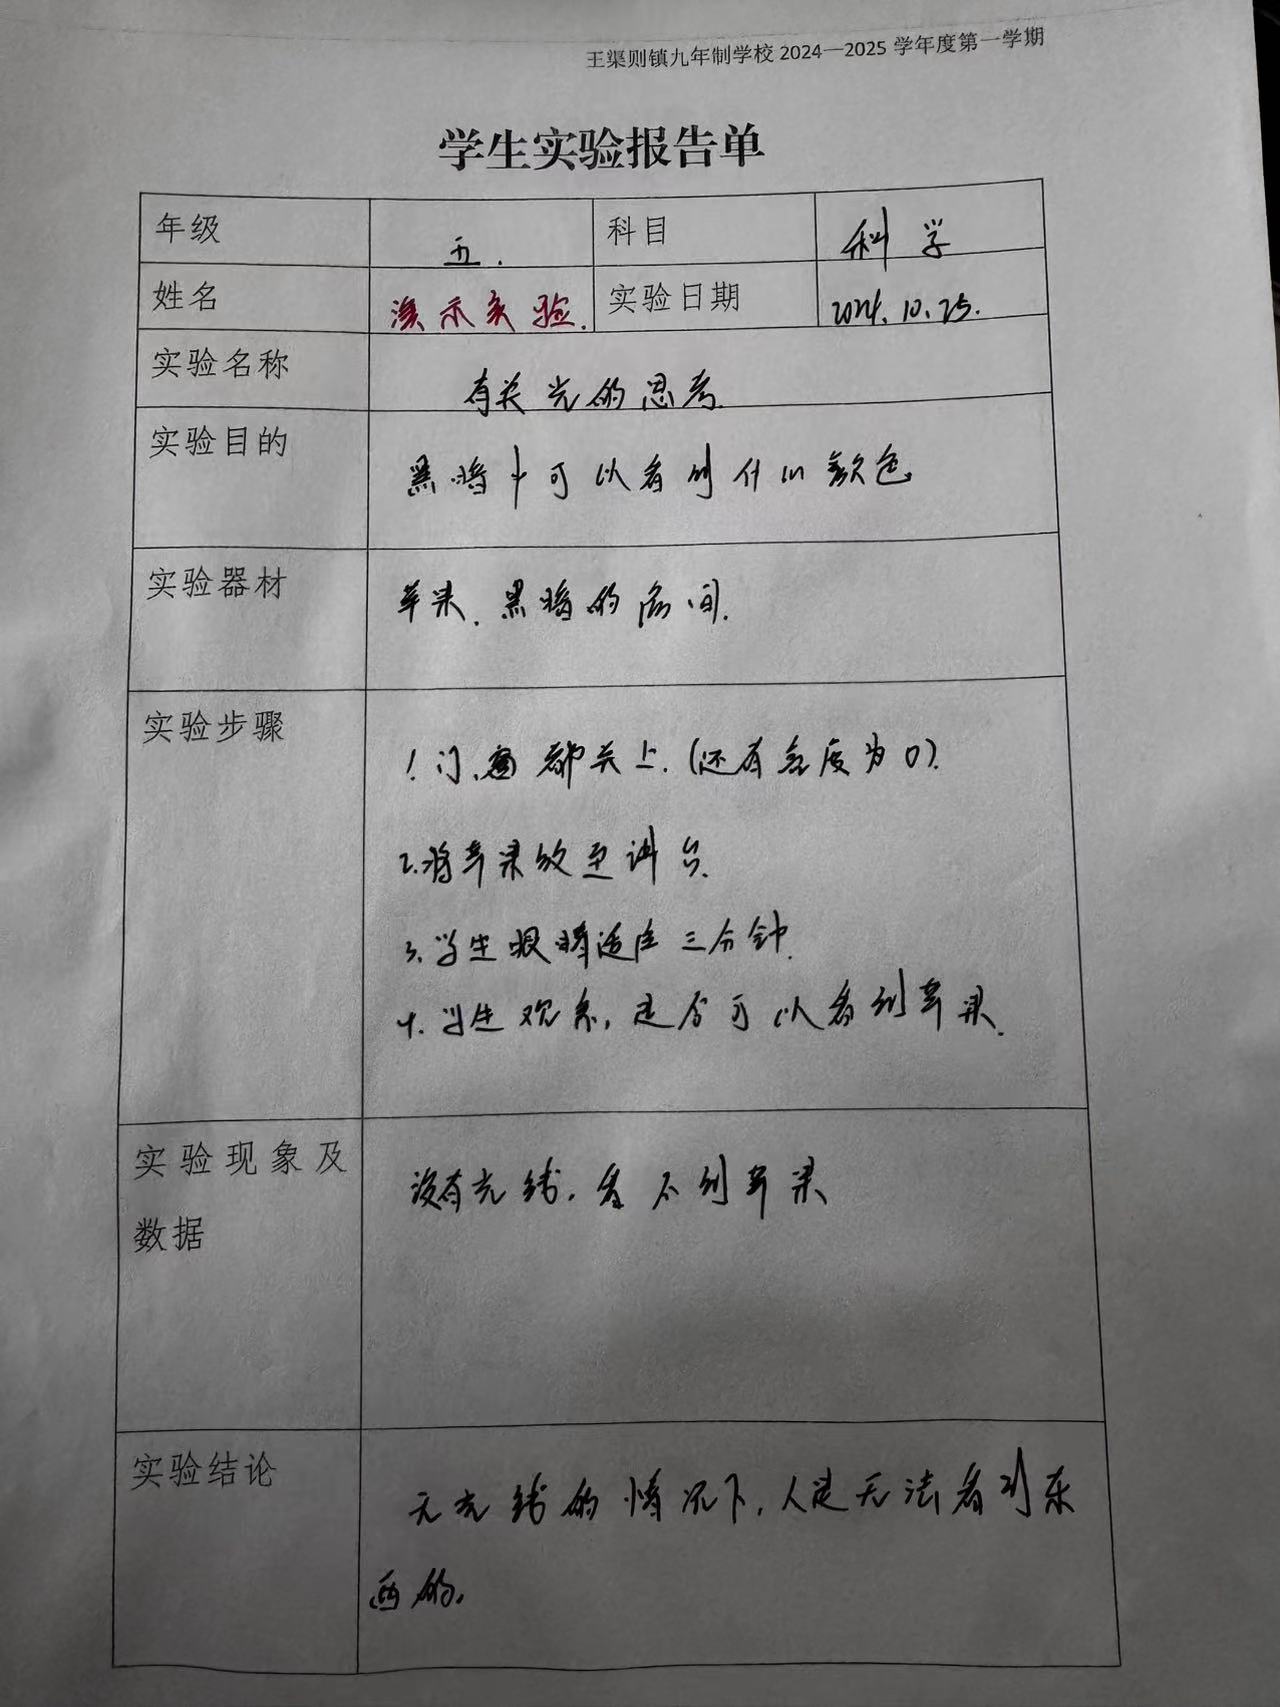 王渠则镇九年制学校 2024—2025 学年度第一学期
学生实验报告单
年级 五. 科目 科学
姓名 演示实验. 实验日期 2024.10.25.
实验名称 有关光的思考.
实验目的 黑暗中可以看到什么颜色
实验器材 苹果、黑暗的房间.
实验步骤
1.门、窗都关上.(还有亮度为0).
2.将苹果放至讲台.
3.学生眼睛适应三分钟.
4.学生观察,是否可以看到苹果.
实验现象及
数据
没有光线,看不到苹果
实验结论
无光线的情况下,人是无法看到东
西的.